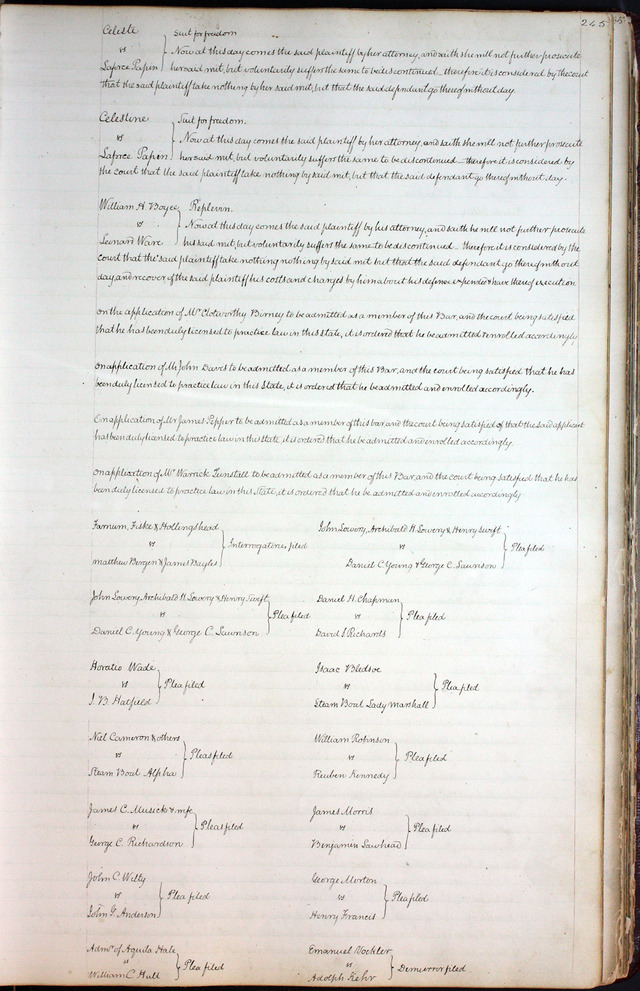 245
Celeste } Suit for freedom
vs } Now at this day comes the said plaintiff by her attorney, and saith she will not further prosecute
Laforce Papin } her said suit, but voluntarily suffers the same to be discontinued therefore it is considered by the court
that the said plaintiff take nothing by her said suit, but that the said defendant go thereof without day.
Celestine } Suit for freedom.
vs } Now at this day comes the said plaintiff by her attorney, and saith she will not further prosecute
Laforce Papin } her said suit, but voluntarily suffers the same to be discontinued therefore it is considered by
the court that the said plaintiff take nothing by said suit, but that the said defendant go thereof without day.
William H. Boyce } Replevin.
vs } Now at this day comes the said plaintiff by his attorney, and saith he will not further prosecute
Leonard Ware } his said suit, but voluntarily suffers the same to be discontinued therefore it is considered by the
court that the said plaintiff take nothing nothing by said suit but that the said defendant go thereof without
day, and recover of the said plaintiff his costs and charges by him about his defence expended & have thereof execution
On the application of Mr Clotworthy Birney to be admitted as a member of this Bar, and the court being satisfied
that he has been duly licensed to practice law in this State, it is ordered that he be admitted & enrolled accordingly
On application of Mr John Davis to be admitted as a member of this Bar, and the court being satisfied that he has
been duly licensed to practice law in this State, it is ordered that he be admitted and enrolled accordingly.
On application of Mr James Pepper to be admitted as a member of this bar and the court being satisfied of that the said applicant
has been duly licensed to practice law in this state, it is ordered that he be admitted and enrolled accordingly.
On application of Mr Warrick Tunstall to be admitted as a member of this Bar, and the court being satisfied that he has
been duly licensed to practice law in this State, it is ordered that he be admitted and enrolled accordingly
Farnum, Fiske & Hollingshead
vs } Interrogatories filed
Matthew Bergen & James Bayles
John Lowery, Archibald H. Lowery & Henry Swift
vs } Plea filed
Daniel C Young & George C. Swonson
John Lowery Archibald H Lowery & Henry Swift
vs } Plea filed
Daniel C. Young & George C. Swonson
Daniel H. Chapman
vs } Plea filed
David I Richards
Horatio Wade
vs } Plea filed
J. B. Hatfield
Isaac Bledsoe
vs } Plea filed
Steam Boat Lady Marshall
Niel Cameron & others
vs } Pleas filed
Steam Boat Alpha
William Robinson
vs } Plea filed
Reuben Kennedy
James C. Musick & wife
vs } Pleas filed
George C. Richardson
James Morris
vs } Plea filed
Benjamin Lawhead
John C. Witty
vs } Plea filed
John F. Anderson
George Morton
vs } Plea filed
Henry Francis
Admr of Aquila Hale
vs } Plea filed
William C Hull
Emanuel Vockler
vs } Demurrer filed
Adolph Kehr